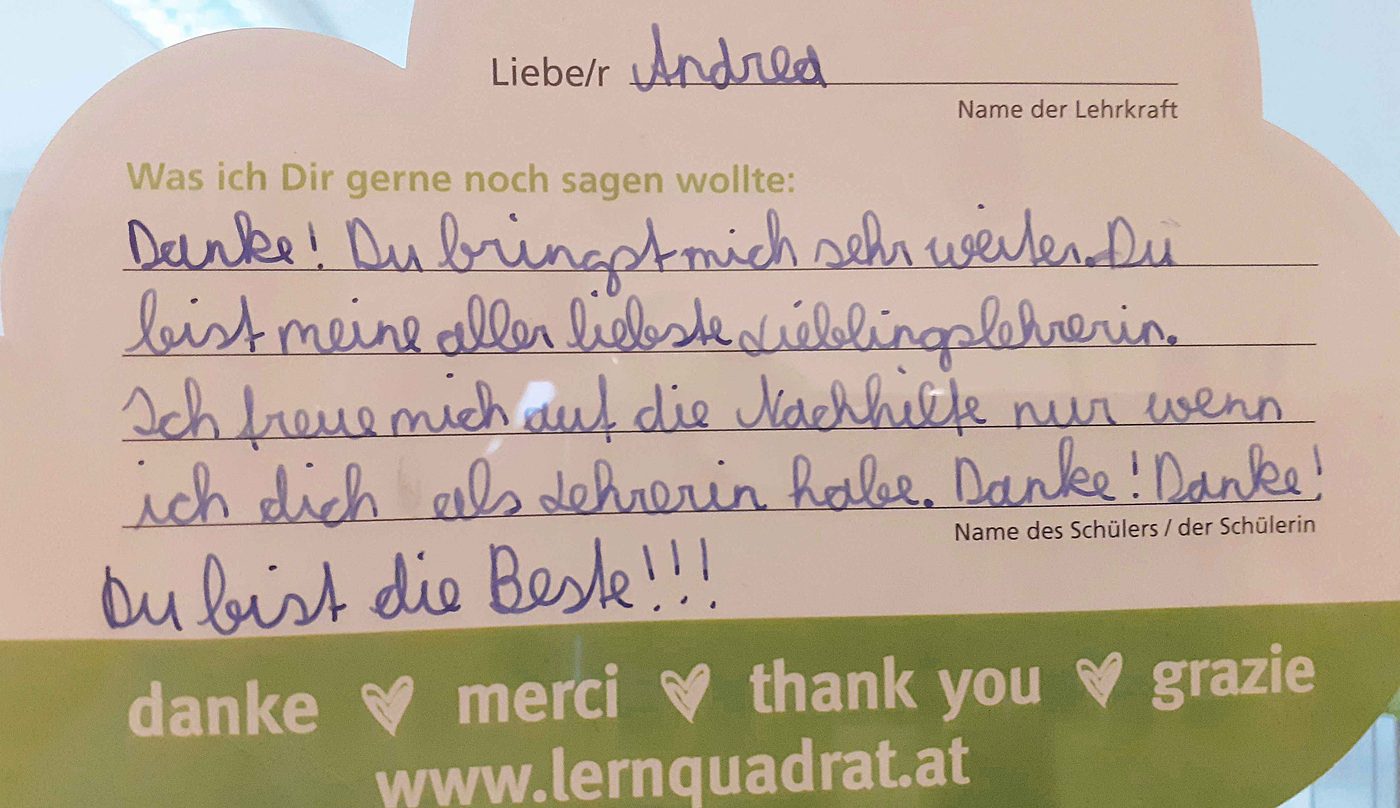 Liebe/r Andrea
Name der Lehrkraft
Was ich Dir gerne noch sagen wollte:
Danke! Du bringst mich sehr weiter. Du
bist meine aller liebste Lieblingslehrerin.
Ich freue mich auf die Nachhilfe nur wenn
ich dich als Lehrerin habe. Danke! Danke!
Name des Schülers / der Schülerin
Du bist die Beste!!!
danke merci thank you grazie
www.lernquadrat.at